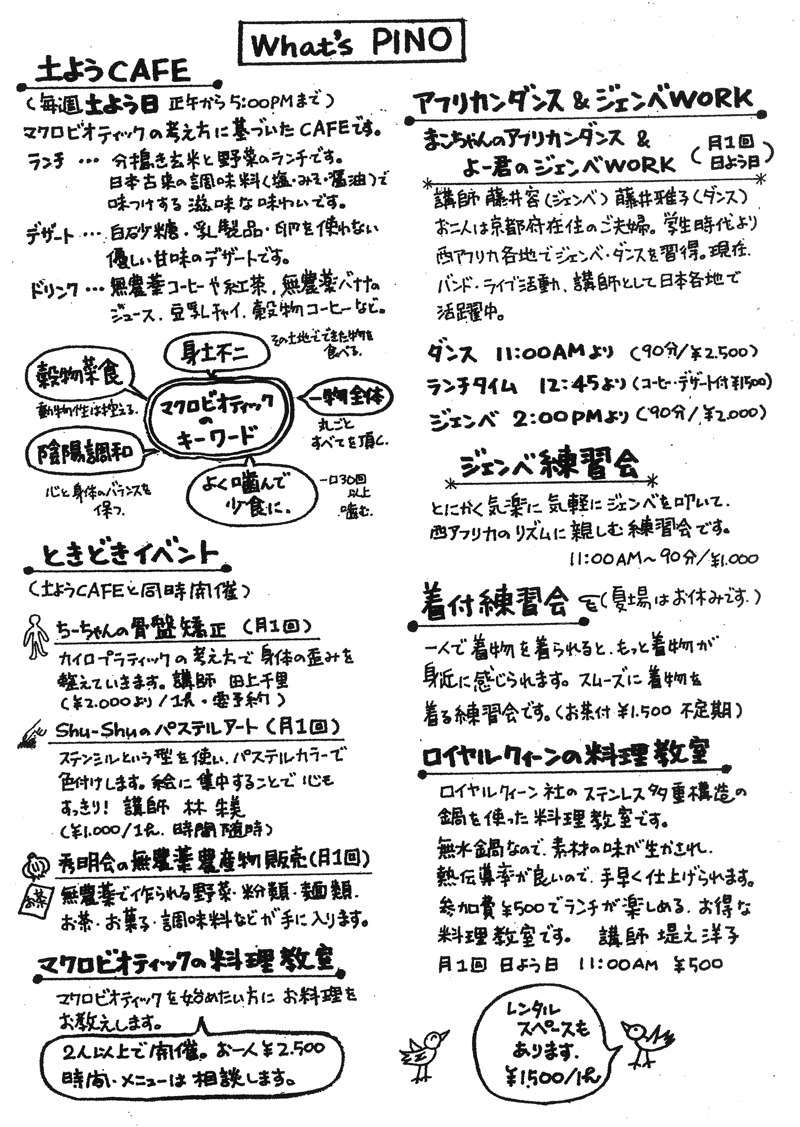 What's PINO
土ようCAFE
(毎週土よう日 正午から5:00PMまで)
マクロビオティックの考え方に基づいたCAFEです。
ランチ … 分搗き玄米と野菜のランチです。
日本古来の調味料(塩・みそ・醤油)で
味つけする滋味な味わいです。
デザート … 白砂糖・乳製品・卵を使わない
優しい甘味のデザートです。
ドリンク … 無農薬コーヒーや紅茶、無農薬バナナの
ジュース、豆乳チャイ、穀物コーヒーなど。
身土不二
その土地でできた物を
食べる。
穀物菜食
動物性は控える。
マクロビオティック
の
キーワード
一物全体
丸ごと
すべてを頂く。
陰陽調和
心と身体のバランスを
保つ。
よく噛んで
少食に。
一口30回
以上
噛む。
ときどきイベント
(土ようCAFEと同時開催)
ちーちゃんの骨盤矯正 (月1回)
カイロプラティックの考え方で身体の歪みを
整えていきます。講師 田上千里
(¥2.000より/1h・要予約)
Shu-Shuのパステルアート(月1回)
ステンシルという型を使い、パステルカラーで
色付けします。絵に集中することで心も
すっきり! 講師 林 朱美
(¥1.000/1h. 時間随時)
秀明会の無農薬農産物販売(月1回)
お茶
無農薬で作られる野菜・粉類・麺類・
お茶・お菓子・調味料などが手に入ります。
マクロビオティックの料理教室
マクロビオティックを始めたい方にお料理を
お教えします。
2人以上で開催。お一人¥2.500
時間・メニューは相談します。
アフリカンダンス&ジェンベWORK
まこちゃんのアフリカンダンス &
よー君のジェンベWORK (月1回 日よう日)
講師 藤井容(ジェンベ) 藤井雅子(ダンス)
お二人は京都府在住のご夫婦。学生時代より
西アフリカ各地でジェンベ・ダンスを習得。現在、
バンド・ライブ活動、講師として日本各地で
活躍中。
ダンス 11:00AMより (90分/¥2.500)
ランチタイム 12:45より(コーヒー・デザート付¥1500)
ジェンベ 2:00PMより(90分/¥2.000)
ジェンベ練習会
とにかく気楽に気軽にジェンベを叩いて、
西アフリカのリズムに親しむ練習会です。
11:00AM~90分/¥1.000
着付練習会 (夏場はお休みです。)
一人で着物を着られると、もっと着物が
身近に感じられます。スムーズに着物を
着る練習会です。(お茶付¥1.500 不定期)
ロイヤルクィーンの料理教室
ロイヤルクィーン社のステンレス多重構造の
鍋を使った料理教室です。
無水鍋なので、素材の味が生かされ、
熱伝導率が良いので、手早く仕上げられます。
参加費¥500でランチが楽しめる、お得な
料理教室です。 講師 堤之洋子
月1回 日よう日 11:00AM ¥500
レンタル
スペースも
あります。
¥1,500/1h